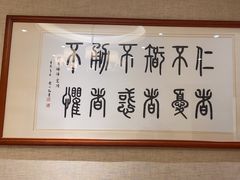 仁者
不憂
知者
不惑
勇者
不懼